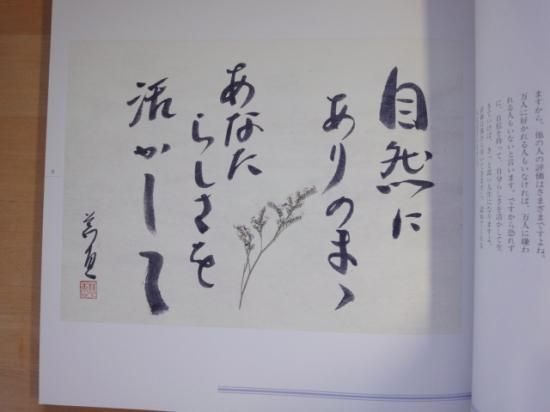 ますから、他の人の評価はさまざまですよね。
万人に好かれる人もいなければ、万人に嫌わ
れる人もいないと言います。ですから恐れず
に、自信を持って、自分らしさを活かして生
自然に
ありのまゝ
あなた
らしさを
活かして